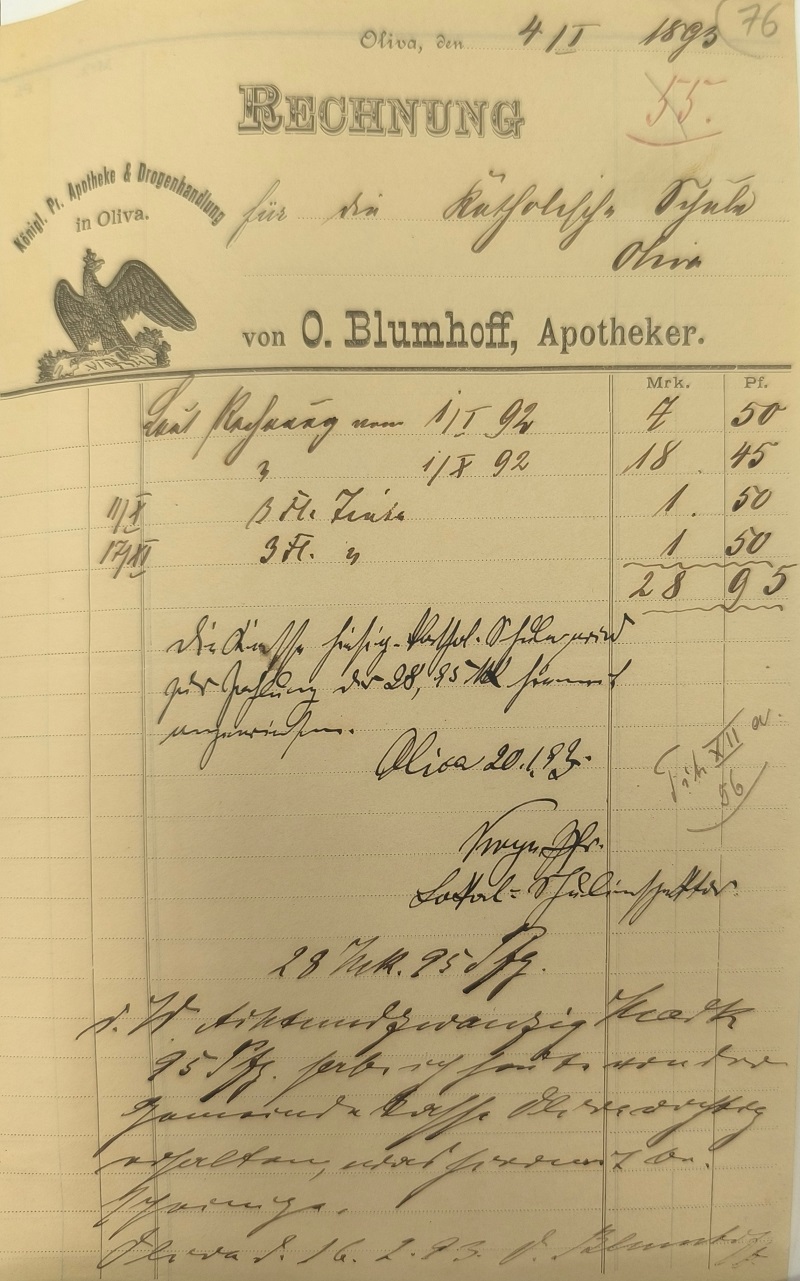 76
Oliva, den 4/I 1893
RECHNUNG
55.
Königl. Pr. Apotheke & Drogenhandlung
in Oliva.
für die Katholische Schule
Oliva
von O. Blumhoff, Apotheker.
Mrk. Pf.
Laut Rechnung vom 1/I 92 7 50
" 1/X 92 18. 45
11/X 3 Fl. Tinte 1. 50
17/XI 3 Fl. " 1 50
28 95
Die Kasse hiesig. kathol. Schule wird
zur Zahlung der 28,95 M hiermit
angewiesen.
Oliva 20.1.93.
Tit. XII a.
56
Lokal-Schulinspektor.
28 Mrk. 95 Pfg.
d. W. Achtundzwanzig Mark
95 Pfg. habe ich heute von der
Gemeinde Kasse Oliva richtig
erhalten, was hiermit be-
scheinige.
Oliva d. 16. 2. 93. O. Blumhoff